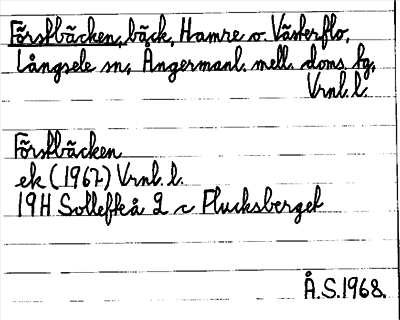 Förstbäcken, bäck, Hamre o. Västerflo,
Långsele sn, Ångermanl. mell. doms. fg,
Vrnl. l.
Förstbäcken
ek (1967) Vrnl. l.
19H Sollefteå 2 c Flucksberget
Å.S.1968.